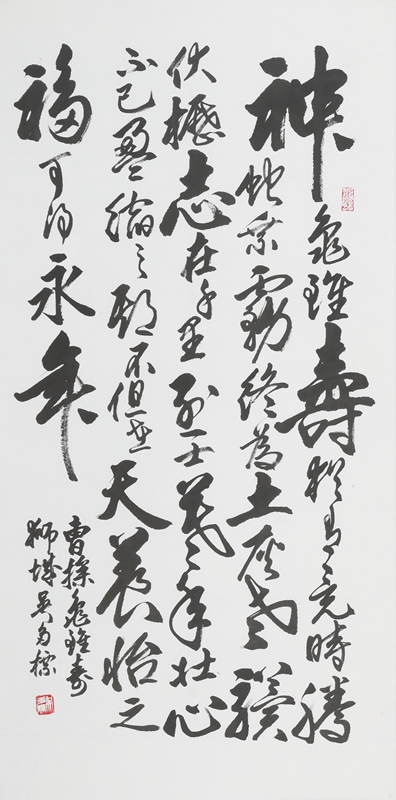 神龜雖壽猶有竟時騰
蛇乘霧終為土灰老驥
伏櫪志在千里烈士暮年壯心
不已盈縮之期不但在天養怡之
福可得永年
曹操龜雖壽
獅城吳